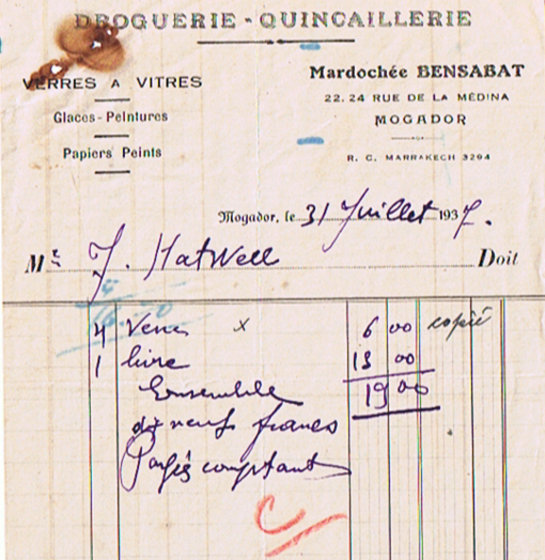 DROGUERIE - QUINCAILLERIE
VERRES A VITRES
Glaces - Peintures
Papiers Peints
Mardochée BENSABAT
22. 24 RUE DE LA MÉDINA
MOGADOR
R. C. MARRAKECH 3294
Mogador, le 31 Juillet 1937.
Mr J. Hatwell Doit
4 Verres x 6 00 copié
1 livre 13 00
Ensemble 19 00
dix neufs francs
Payés comptant